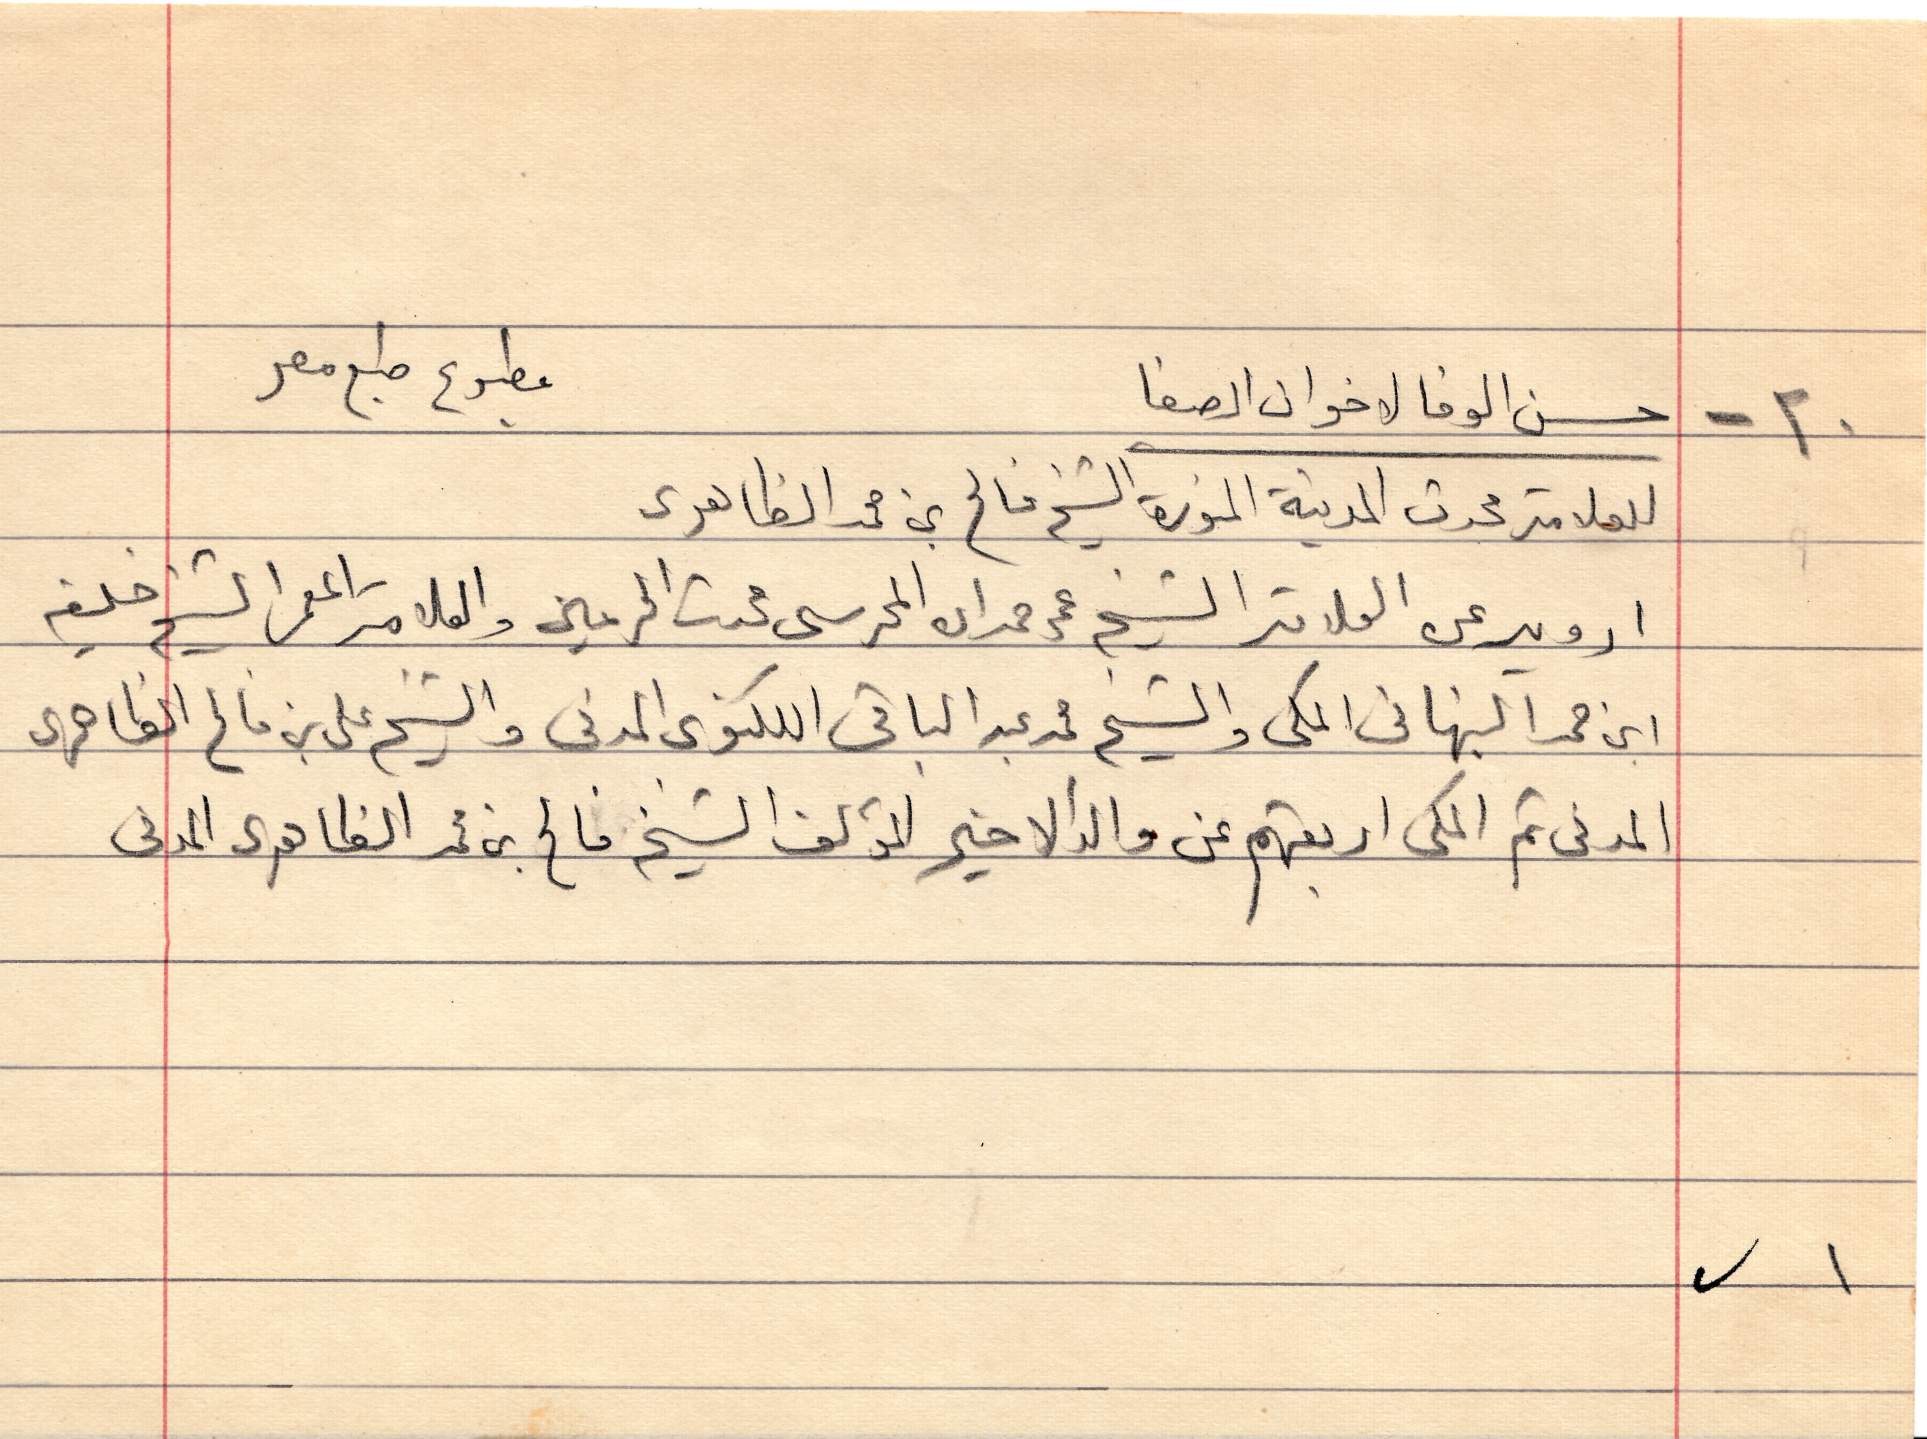 ٢٠ - حسن الوفا لاخوان الصفا مطبوع طبع مصر
للعلامة محدث المدينة المنورة الشيخ فالح بن محمد الظاهرى
ارويه عن العلامة الشيخ عمر حمدان المحرسى محدث الحرمين والعلامة المعمر الشيخ خليفه
ابن حمد النبهانى المكى والشيخ محمد عبد الباقى اللكنوى المدنى والشيخ على بن فالح الظاهرى
المدنى ثم المكى اربعتهم عن والد الاخير المؤلف الشيخ فالح بن محمد الظاهرى المدنى
١